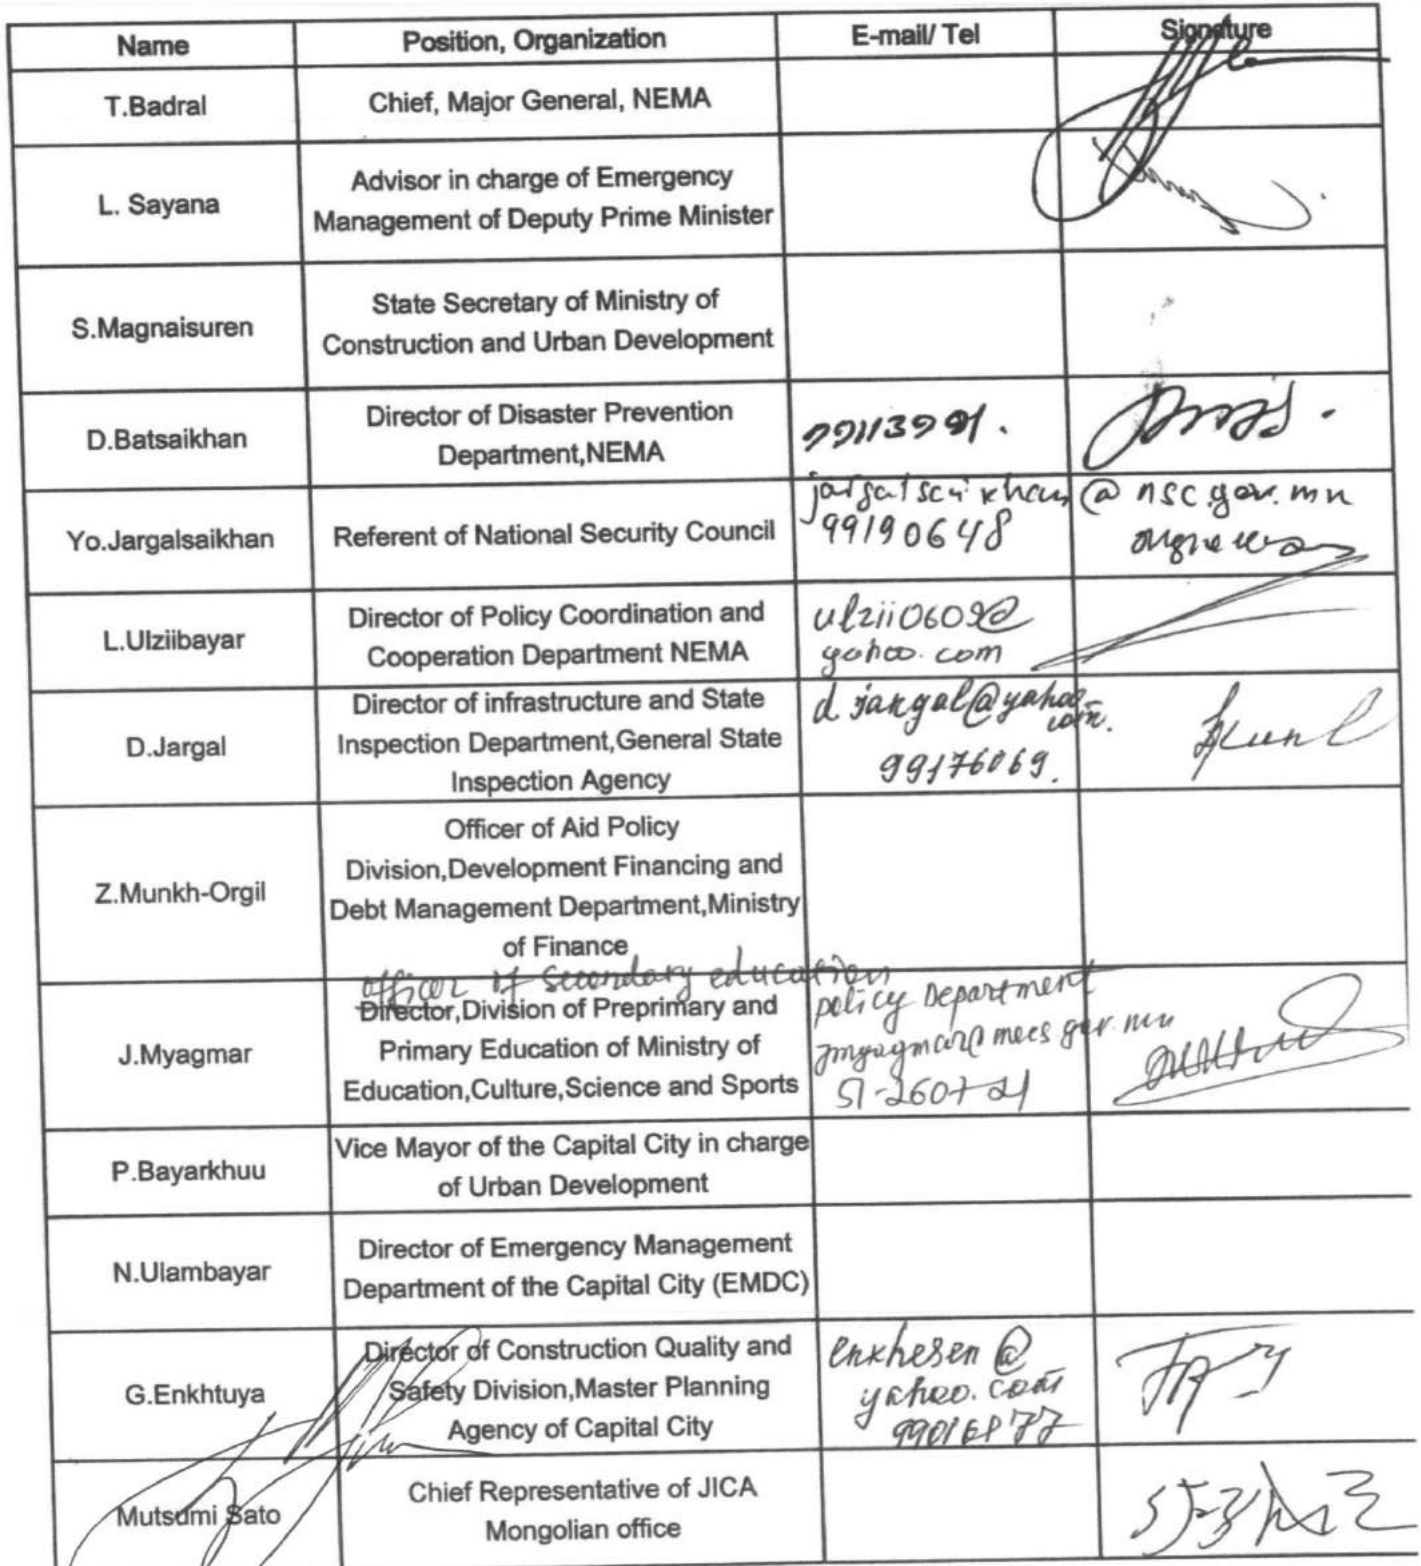 Name Position, Organization E-mail/ Tel Signature
T.Badral Chief, Major General, NEMA
L. Sayana Advisor in charge of Emergency
Management of Deputy Prime Minister
S.Magnaisuren State Secretary of Ministry of
Construction and Urban Development
D.Batsaikhan Director of Disaster Prevention
Department,NEMA
Yo.Jargalsaikhan Referent of National Security Council
jargalsaikhan@nsc.gov.mn
99190648
L.Ulziibayar Director of Policy Coordination and
Cooperation Department NEMA
ulzii0609@
yahoo.com
D.Jargal Director of infrastructure and State
Inspection Department,General State
Inspection Agency
d.jargal@yahoo
com.
99176069.
Z.Munkh-Orgil Officer of Aid Policy
Division,Development Financing and
Debt Management Department,Ministry
of Finance
officer of secondary education
policy Department
J.Myagmar Director,Division of Preprimary and
Primary Education of Ministry of
Education,Culture,Science and Sports
jmyagmar@mecs.gov.mn
51-260721
P.Bayarkhuu Vice Mayor of the Capital City in charge
of Urban Development
N.Ulambayar Director of Emergency Management
Department of the Capital City (EMDC)
G.Enkhtuya Director of Construction Quality and
Safety Division,Master Planning
Agency of Capital City
enkhesen@
yahoo.com
Mutsumi Sato Chief Representative of JICA
Mongolian office